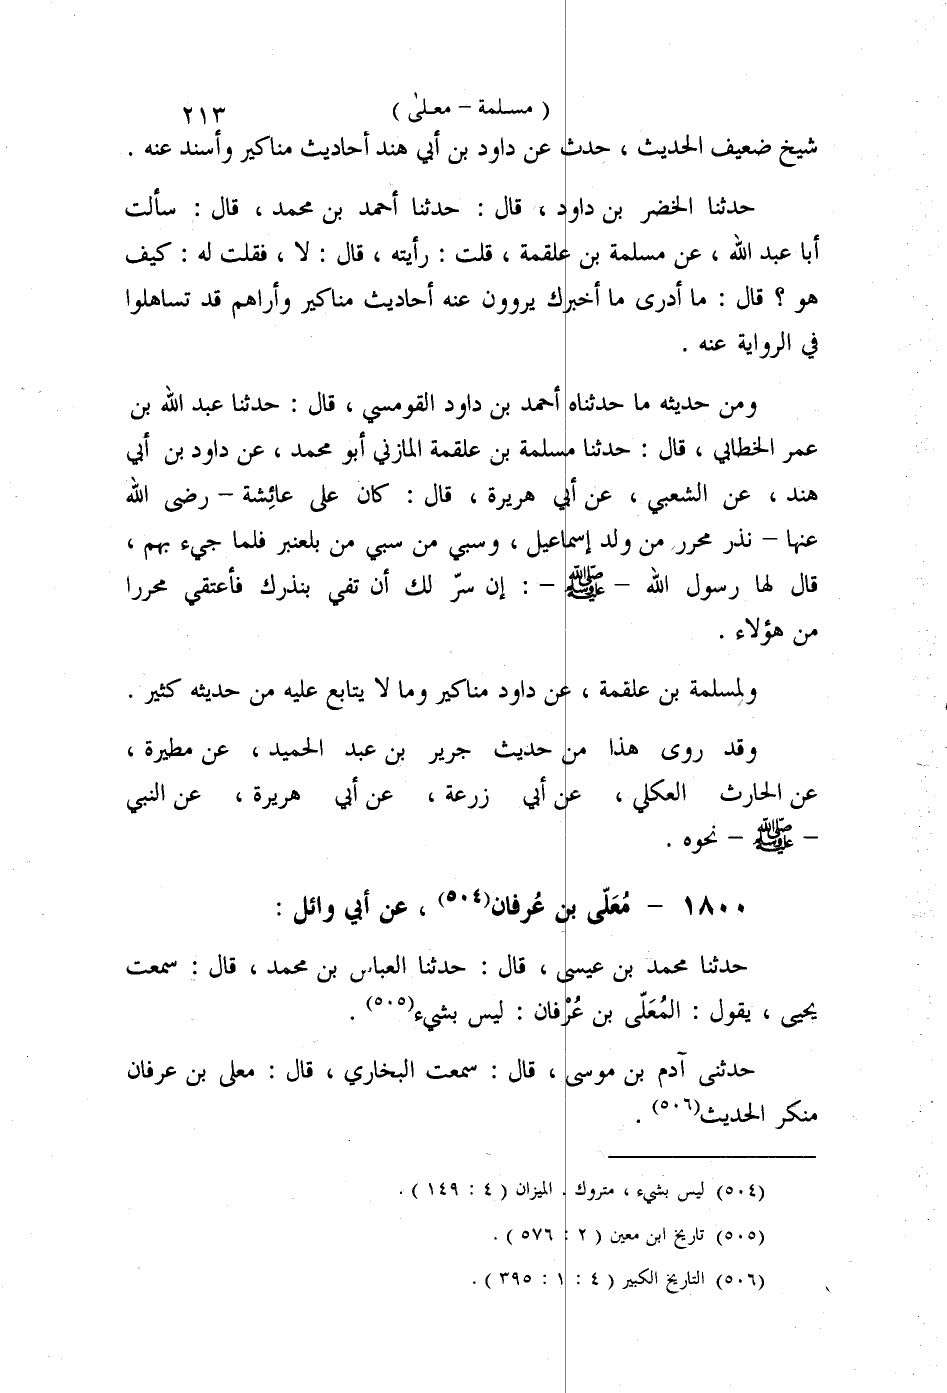 ( مسلمة – معلىٰ ) ٢١٣
شيخ ضعيف الحديث ، حدث عن داود بن أبي هند أحاديث مناكير وأسند عنه .
حدثنا الخضر بن داود ، قال : حدثنا أحمد بن محمد ، قال : سألت
أبا عبد الله ، عن مسلمة بن علقمة ، قلت : رأيته ، قال : لا ، فقلت له : كيف
هو ؟ قال : ما أدرى ما أخبرك يروون عنه أحاديث مناكير وأراهم قد تساهلوا
في الرواية عنه .
ومن حديثه ما حدثناه أحمد بن داود القومسي ، قال : حدثنا عبد الله بن
عمر الخطابي ، قال : حدثنا مسلمة بن علقمة المازني أبو محمد ، عن داود بن أبي
هند ، عن الشعبي ، عن أبي هريرة ، قال : كان على عائِشة – رضى الله
عنها – نذر محرر من ولد إسماعيل ، وسبي من سبي من بلعنبر فلما جيء بهم ،
قال لها رسول الله – ﷺ – : إن سرّ لك أن تفي بنذرك فأعتقي محررا
من هؤلاء .
ولمسلمة بن علقمة ، عن داود مناكير وما لا يتابع عليه من حديثه كثير .
وقد روى هذا من حديث جرير بن عبد الحميد ، عن مطيرة ،
عن الحارث العكلي ، عن أبي زرعة ، عن أبي هريرة ، عن النبي
– ﷺ – نحوه .
١٨٠٠ – مُعَلّى بن عُرفان(٥٠٤) ، عن أبي وائل :
حدثنا محمد بن عيسى ، قال : حدثنا العباس بن محمد ، قال : سمعت
يحيى ، يقول : المُعَلّى بن عُرْفان : ليس بشيء(٥٠٥) .
حدثنى آدم بن موسى ، قال : سمعت البخاري ، قال : معلى بن عرفان
منكر الحديث(٥٠٦) .
(٥٠٤) ليس بشيء ، متروك . الميزان ( ٤ : ١٤٩ ) .
(٥٠٥) تاريخ ابن معين ( ٢ : ٥٧٦ ) .
(٥٠٦) التاريخ الكبير ( ٤ : ١ : ٣٩٥ ) .